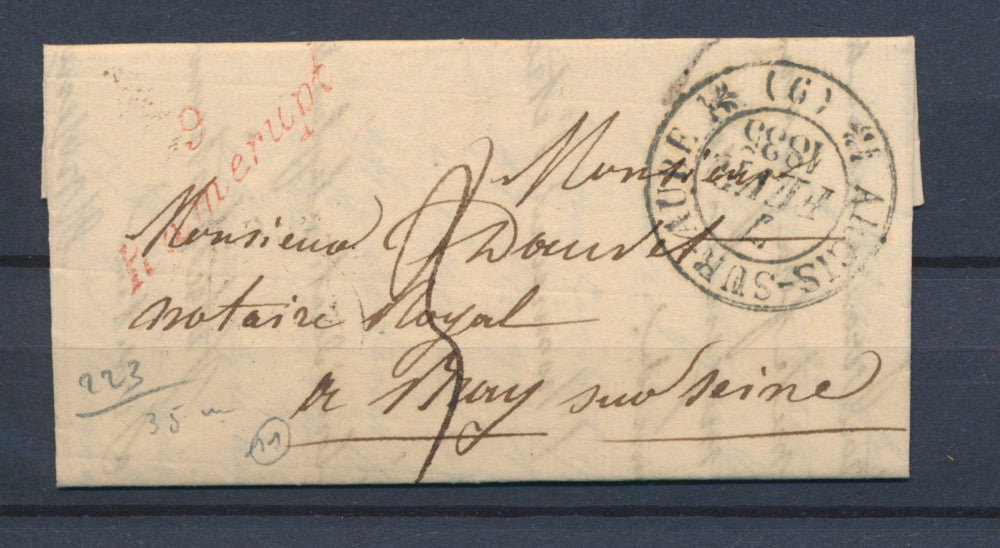 9
Ramerupt
ARCIS-SUR-AUBE (9)
7
FEVR
1833
Monsieur
Monsieur Douvet
notaire Royal
a Bray sur Seine
3
223
35
11